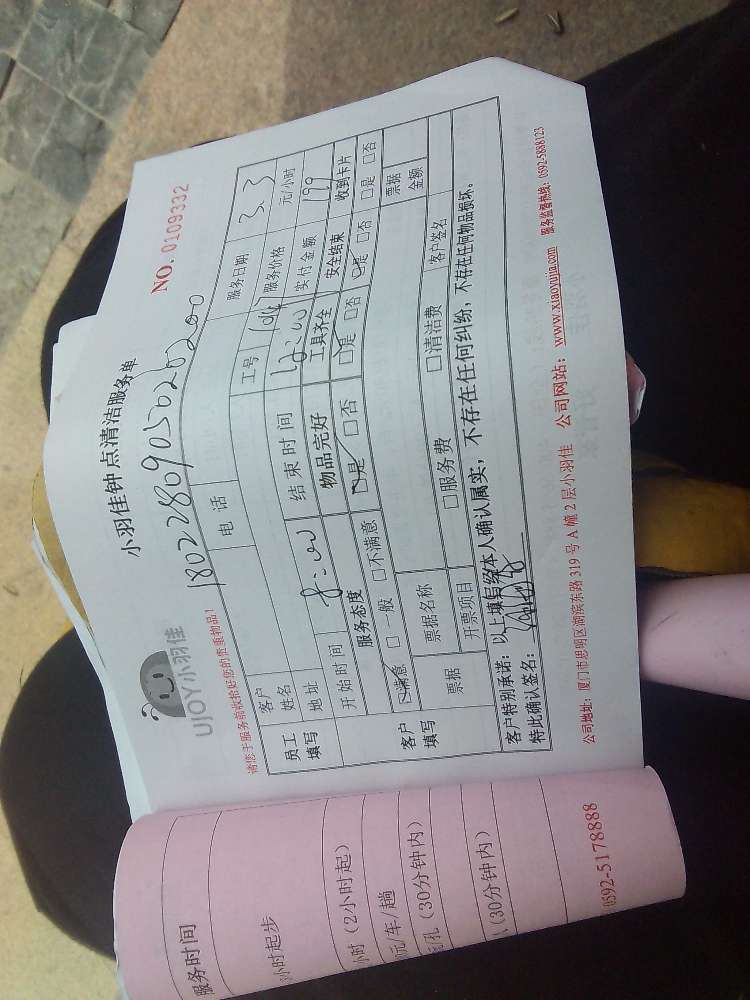 小羽佳钟点清洁服务单
NO. 0109332
UJOY小羽佳
180228090502020200
请您于服务前收拾好您的贵重物品！
员工填写
客户姓名 电话 服务日期 3.3
地址 工号 服务价格 元/小时
开始时间 8:00 结束时间 12:00 实付金额 199
客户填写
服务态度 物品完好 工具齐全 安全结束 收到卡片
☑满意 □一般 □不满意 ☑是 □否 ☑是 □否 ☑是 □否 □是 □否
票据 票据名称 票据金额
开票项目 □服务费 □清洁费 客户签名
客户特别承诺：以上填写经本人确认属实，不存在任何纠纷，不存在任何物品损坏。
特此确认签名：
公司地址：厦门市思明区湖滨东路319号A幢2层小羽佳 公司网站：www.xiaoyujia.com 服务监督热线：0592-5888123
服务时间
小时起步
小时（2小时起）
元/车/趟
孔（30分钟内）
（30分钟内）
0592-5178888